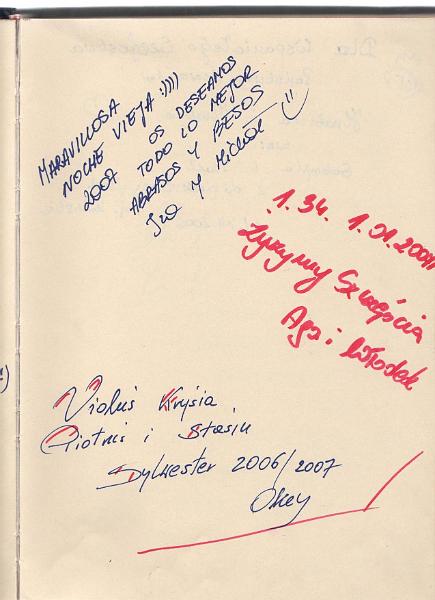 MARAVILLOSA
NOCHE VIEJA :))))
OS DESEAMOS
2007 TODO LO MEJOR
ABRASOS Y BESOS
Iza y Michał
1.34. 1.01.2007r
Życzymy Szczęścia
Aga i Włodek
Violuś Krysia
Piotruś i Stasiu
Sylwester 2006/2007